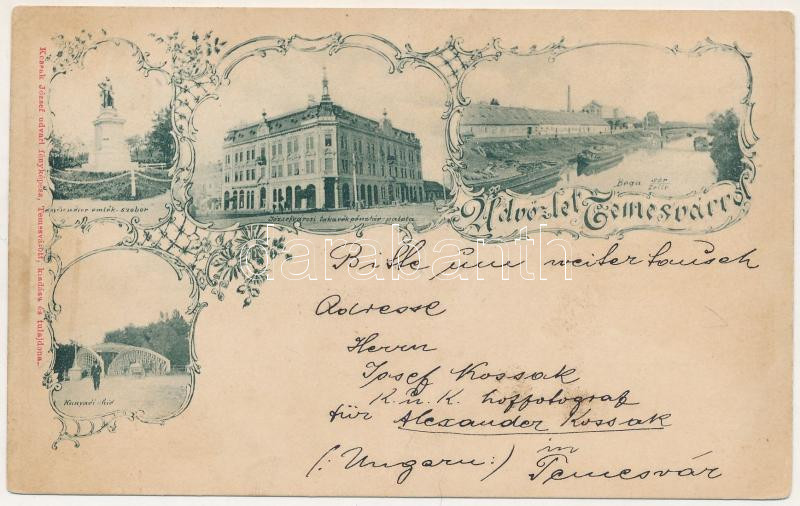 Kossak József udvari fényképész, Temesvárott, kiadása és tulajdona.
emlék-szobor
Józsefvárosi takarékpénztár-palota
Bega sor
Üdvözlet Temesvárról
darabanth
Bitte um weitertausch
Adresse
Herrn
Josef Kossak
K. u. K. hoffotograf
für Alexander Kossak
(: Ungarn :) in Temesvár
Hunyadi-híd